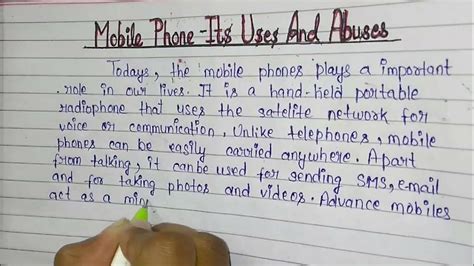 Mobile Phone-Its Uses And Abuses
Todays, the mobile phones plays a important
role in our lives. It is a hand-held portable
radiophone that uses the satelite network for
voice or communication. Unlike telephones, mobile
phones can be easily carried anywhere. Apart
from talking, it can be used for sending SMS, e-mail
and for taking photos and videos. Advance mobiles
act as a min